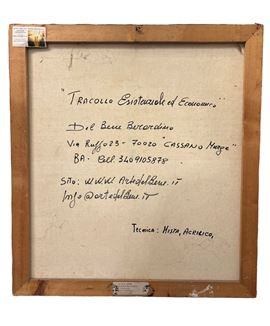 "Tracollo Esistenziale ed Economico"
Del Bene Berardino
Via Ruffo 23 - 70020 "Cassano Murge"
BA. Cell. 3409105878
Sito: WWW. ArtedelBene.it
Info@artedelbene.it
Tecnica: Mista, Acrilico,